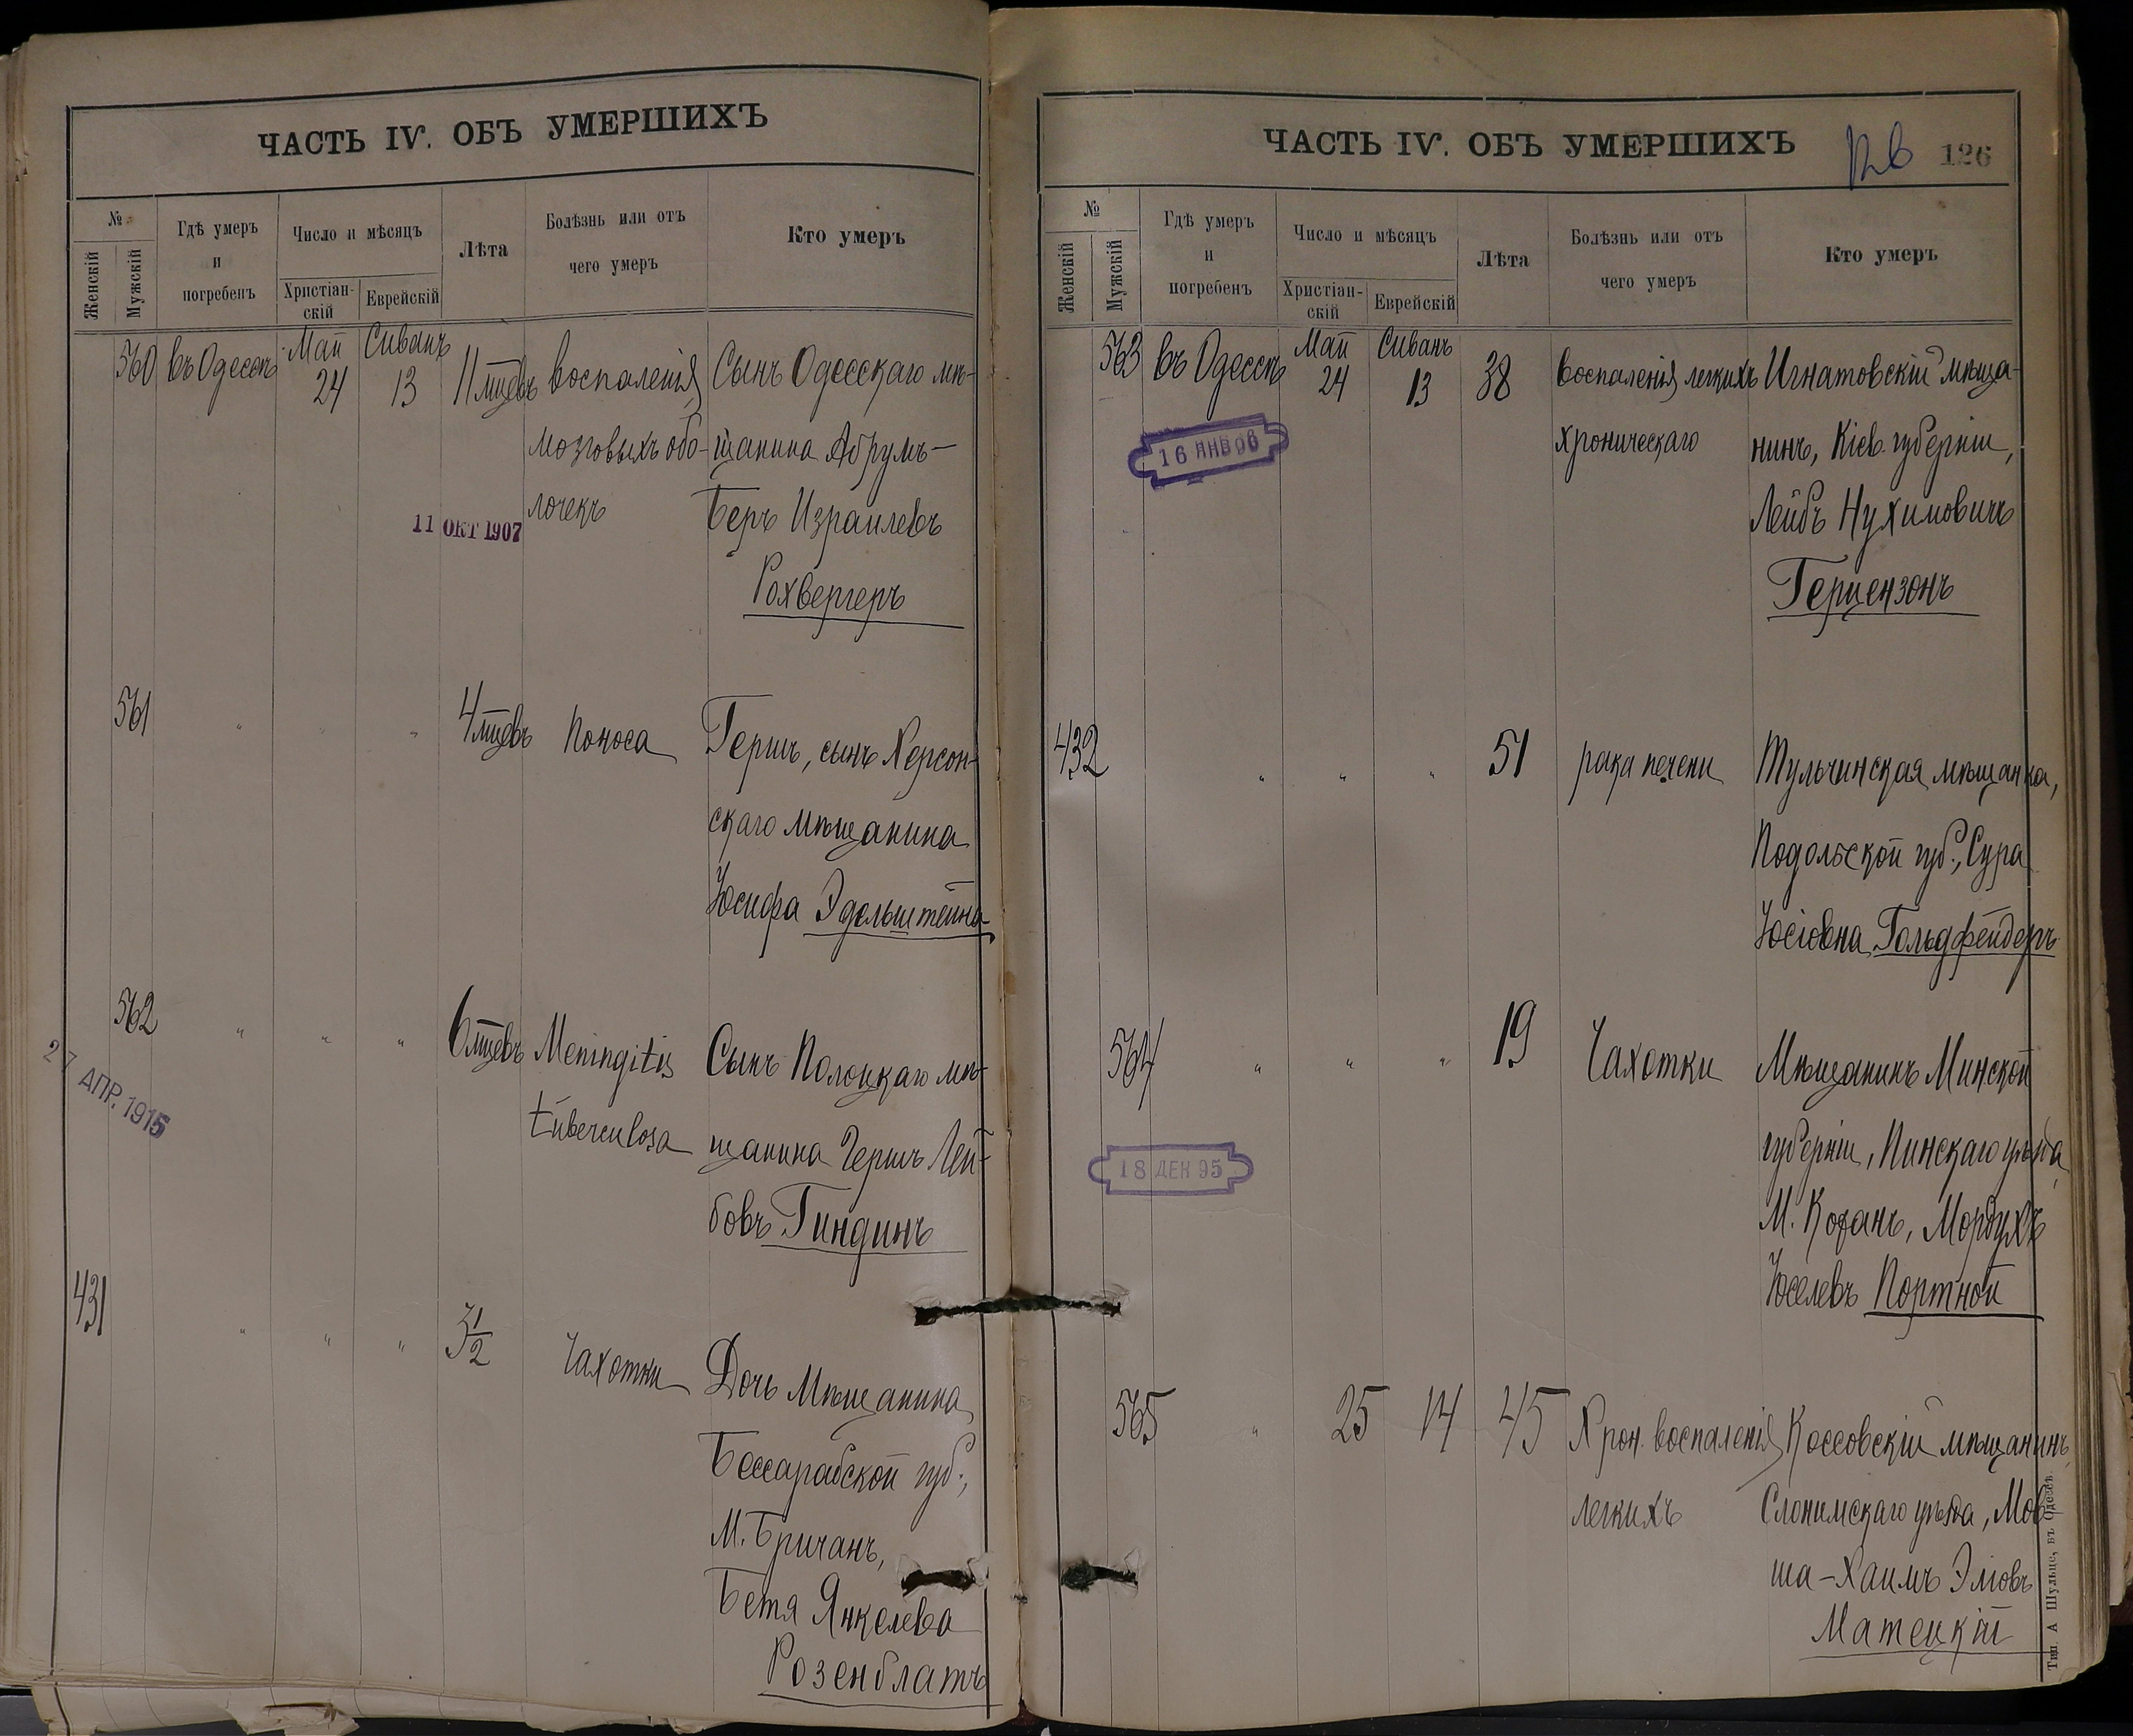 ЧАСТЬ IV. ОБЪ УМЕРШИХЪ
№
Женскій
Мужскій
Гдѣ умеръ
и
погребенъ
Число и мѣсяцъ
Христіан-
скій
Еврейскій
Лѣта
Болѣзнь или отъ
чего умеръ
Кто умеръ
560 въ Одессѣ Май 24 Сиванъ 13 11 мцевъ воспаленія Сынъ Одесскаго мѣ-
мозговыхъ обо- щанина Абрумъ-
лочекъ Беръ Израилевъ
11 ОКТ 1907
Рохвергеръ
561 " " " 4 мцевъ Поноса Гершъ, сынъ Херсон-
скаго мѣщанина
Юсифа Эдельштейна
562 " " " 6 мцевъ Meningitis Сынъ Полоцкаго мѣ-
tuberculosa щанина Гершъ Лей-
бовъ Гиндинъ
27 АПР. 1915
431 " " " 3 1/2 Чахотки Дочь Мѣщанина
Бессарабской губ.,
М. Бричанъ,
Бетя Янкелева
Розенблатъ
ЧАСТЬ IV. ОБЪ УМЕРШИХЪ
126
№
Женскій
Мужскій
Гдѣ умеръ
и
погребенъ
Число и мѣсяцъ
Христіан-
скій
Еврейскій
Лѣта
Болѣзнь или отъ
чего умеръ
Кто умеръ
563 въ Одессѣ Май 24 Сиванъ 13 38 воспаленія легкихъ Игнатовскій мѣща-
хроническаго нинъ, Кіев. губерніи,
16 ЯНВ 06
Лейбъ Нухимовичъ
Герцензонъ
432 " " " 51 рака печени Тульчинская мѣщанка,
Подольской губ., Сура
Юсіовна Гольдфейдеръ
564 " " " 19 Чахотки Мѣщанинъ Минской
губерніи, Пинскаго уѣзда,
18 ДЕК 95
М. Кожанъ, Мордухъ
Юселевъ Портной
565 " 25 14 45 Хрон. воспаленія Коссовскій мѣщанинъ,
легкихъ Слонимскаго уѣзда, Мов-
ша-Хаимъ Эліовъ
Матецкій
Тип. А Шульце, въ Одессѣ.